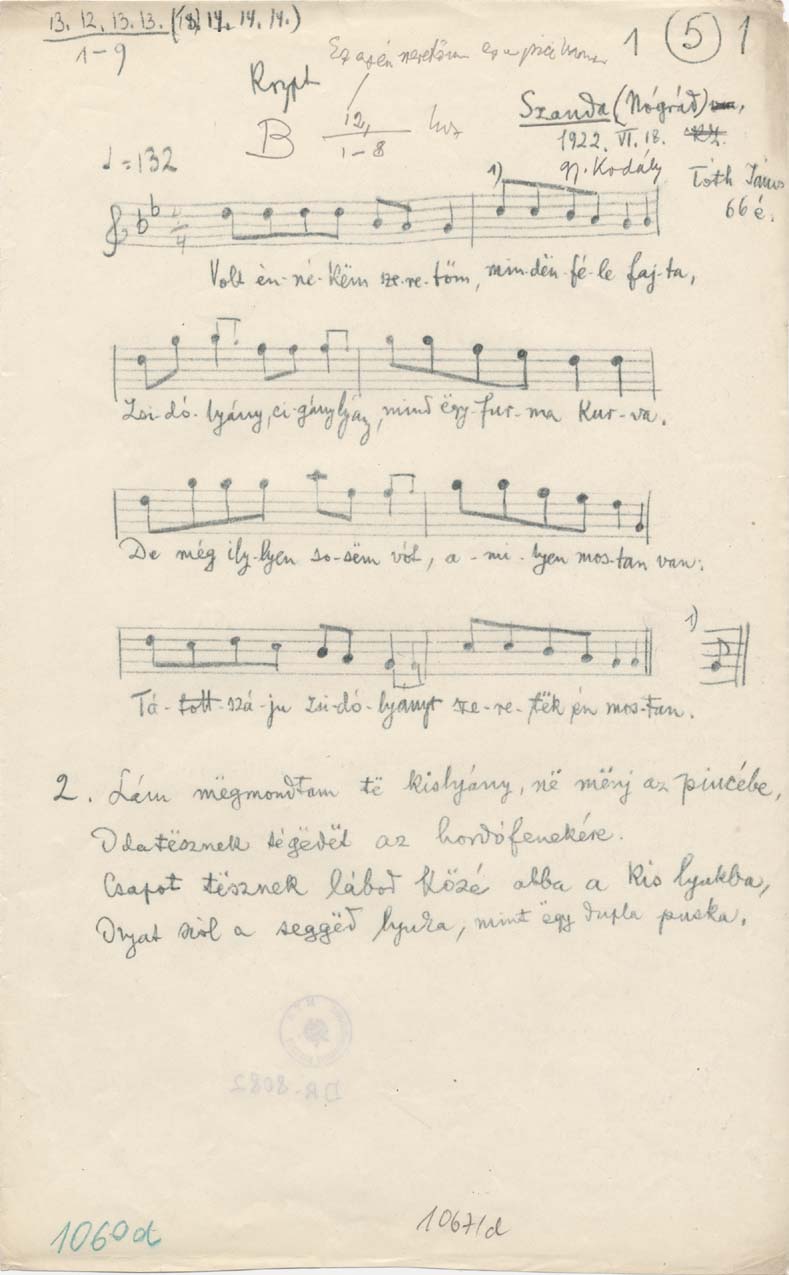 13. 12. 13. 13. (13, 14. 14. 14.)
1-9
1 (5) 1
B
12,
1-8
Szanda (Nógrád),
1922. VI. 18.
gy. Kodály
Tóth János
66 é.
♩=132
1)
Volt én-né-këm sze-re-tőm, min-dën-fé-le faj-ta,
Zsi-dó-lyány, ci-gánylyán, mind ëgy-fur-ma kur-va.
De még ily-lyen so-sëm vót, a-mi-lyen mos-tan van:
1)
Tá-tott-szá-ju zsi-dó-lyányt sze-re-tëk én mos-tan.
2. Lám mëgmondtam të kislyány, në mënj az pincébe,
Odatësznek tégëdët az hordófenekére.
Csapot tësznek lábod közé abba a kis lyukba,
Olyat szól a seggëd lyuka, mint ëgy dupla puska.
DR-8082
1060d
1067/d